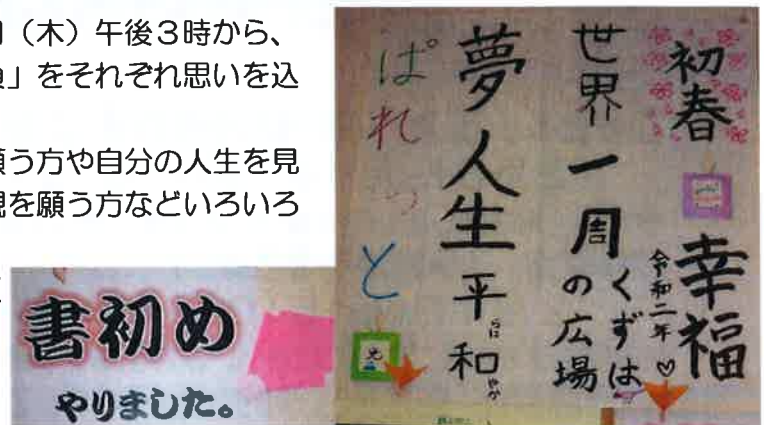 （木）午後３時から、
」をそれぞれ思いを込
う方や自分の人生を見
を願う方などいろいろ
書初め
やりました。
初春
幸福
令和二年♡
世界一周
くずは
の広場
夢
人生
平和
らに
やか
ぱれっと